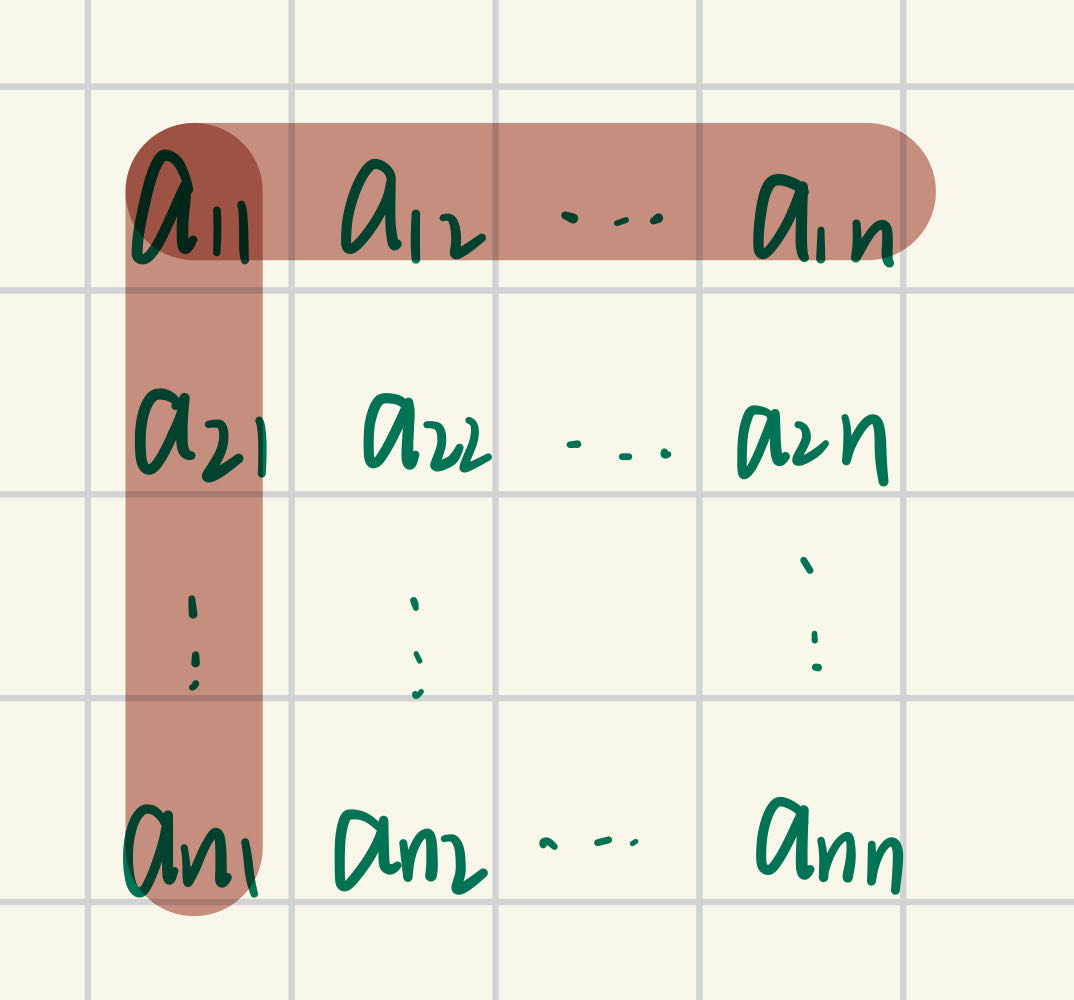 a11 a12 ... a1n
a21 a22 ... a2n
⋮ ⋮ ⋮
an1 an2 ... ann